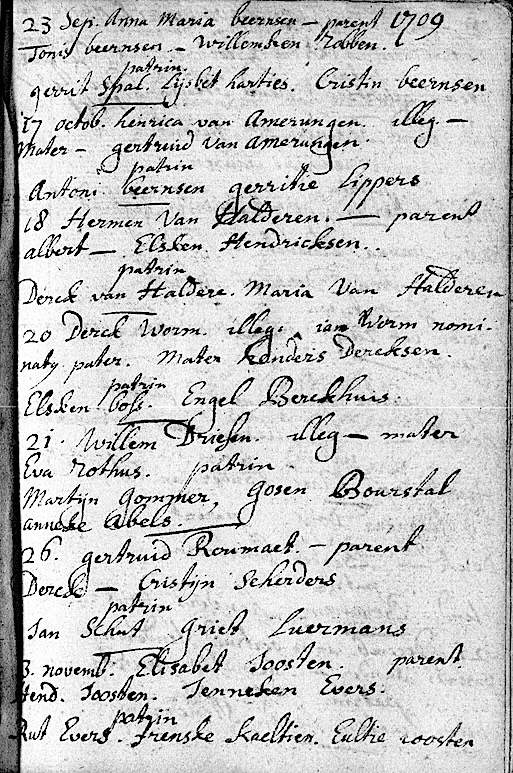 23 Sep. Anna Maria beernsen – parent 1709
Tonis beernsen – Willemken Robben.
patrin.
gerrit Spal. Lijsbet harties. Cristin beernsen
17 octob. henrica van Amerungen. illeg –
Mater – gertruid van Amerungen.
patrin
Antoni beernsen gerritie Lippers
18 Hermen Van Halderen. – parent
albert – Elsken Hendricksen.
patrin
Derck van Haldere. Maria Van Halderen
20 Derck Worm. illeg. ian Worm nomi-
naty pater. Mater Dercksen.
patrin
Elsken boss. Engel Berckhuis.
21. Willem Driesen. illeg – mater
Eva Rothus. patrin
Martijn gommer, gosen Bourstal
anneke Abels.
26. gertruid Roumaet. – parent
Derck – Cristijn Scherders
patrin
Jan Schut griet Luermans
3. novemb. Elisabet Joosten. parent
Hend. Joosten. Jenneken Evers.
patrin
Rut Evers. Frenske Kaeltien. Eultie Joosten